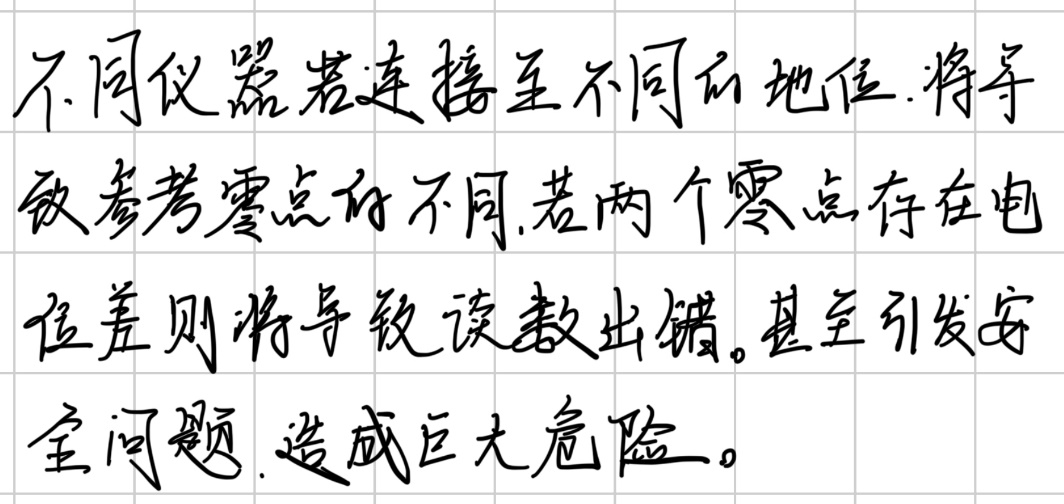 不同仪器若连接至不同的地位.将导
致参考零点的不同.若两个零点存在电
位差则将导致读数出错。甚至引发安
全问题.造成巨大危险。